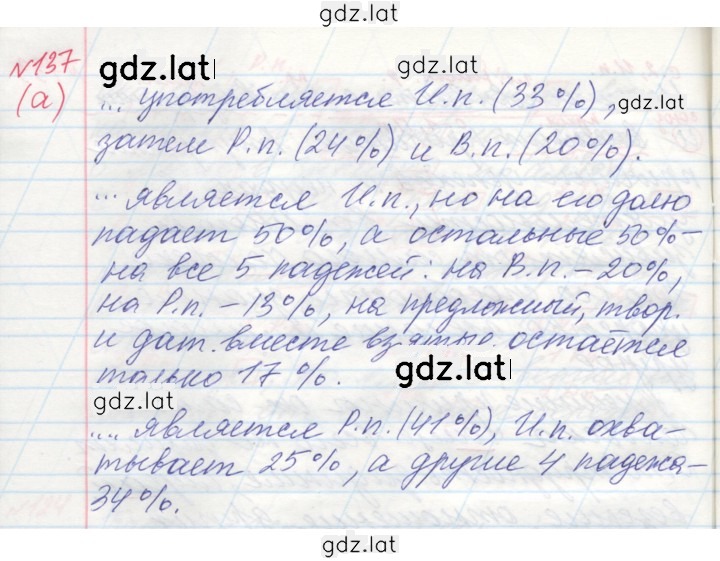 gdz.lat
№137
(а)
gdz.lat
... употребляется И.п. (33%),
gdz.lat
затем Р.п. (24%) и В.п. (20%).
... является И.п., но на его долю
падает 50%, а остальные 50% –
на все 5 падежей: на В.п. – 20%,
на Р.п. – 13%, на предложный, твор.
и дат. вместе взятые остаётся
только 17%.
gdz.lat
gdz.lat
.... является Р.п. (41%), И.п. охва-
тывает 25%, а другие 4 падежа –
34%.
gdz.lat